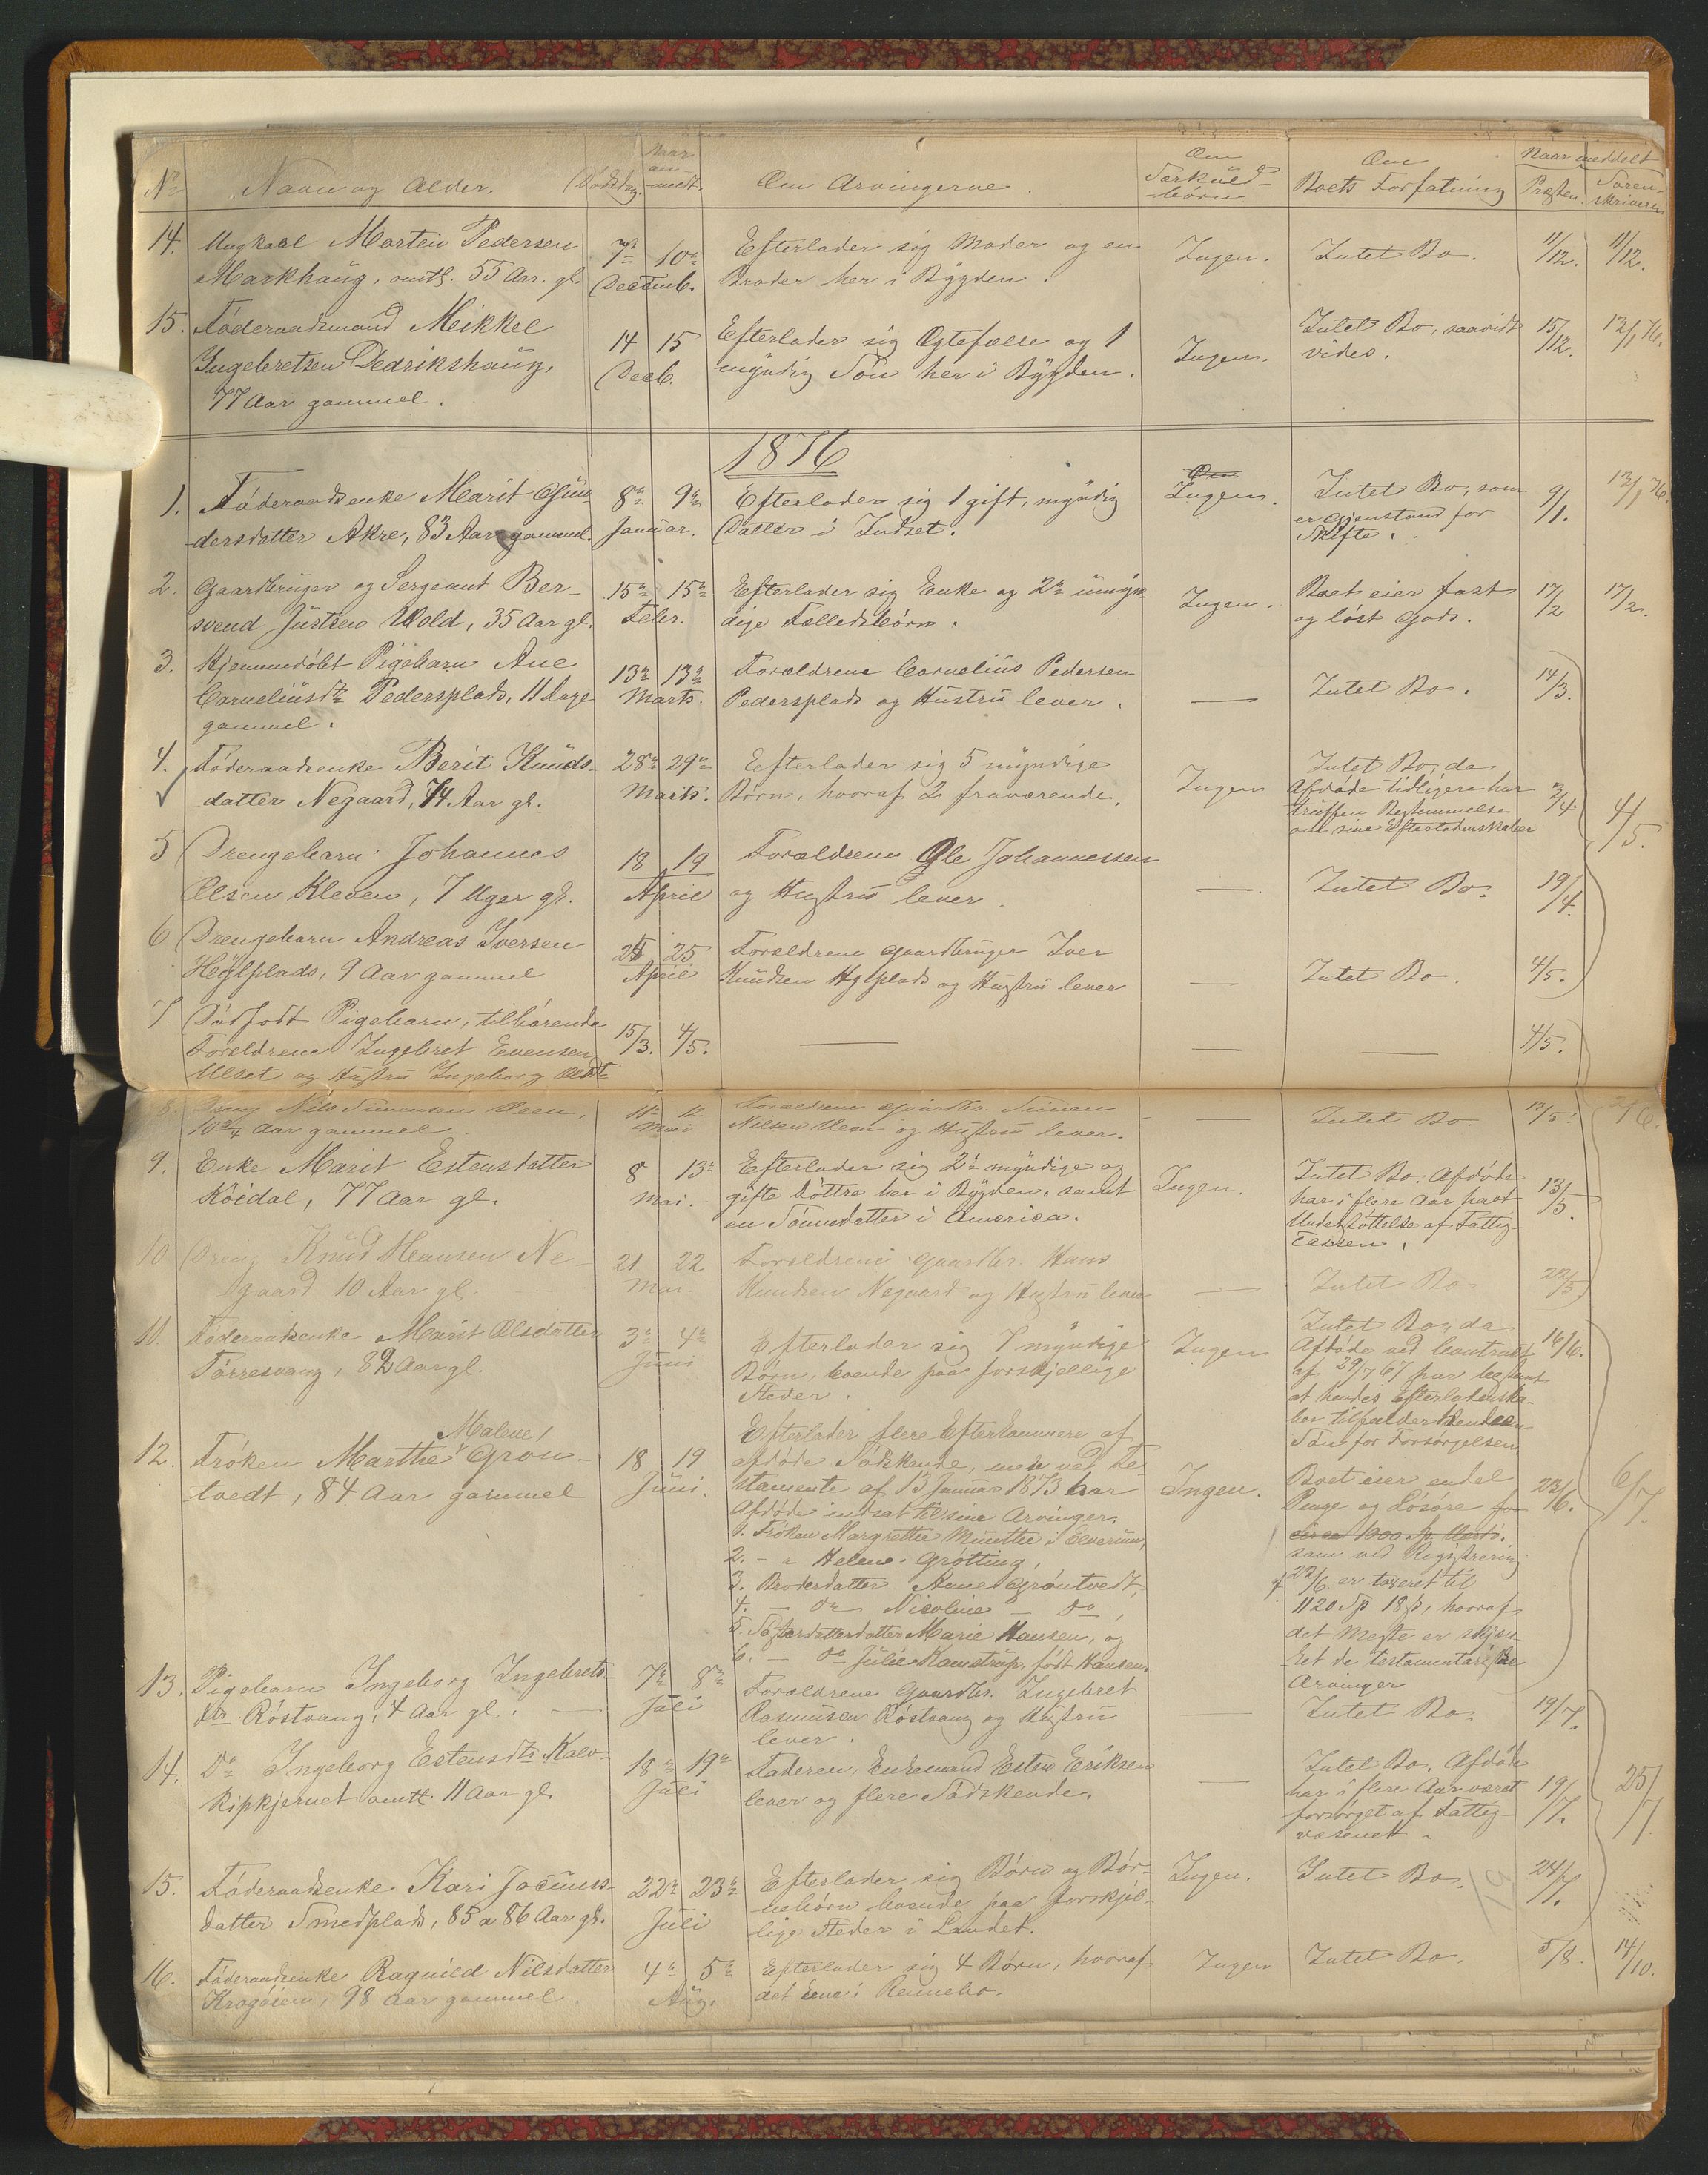 No Navn og Alder. Dödsdag. Naar anmeldt. Om Arvingerne. Om Særkuldbörn Om Boets Forfatning Naar meddelt Præsten. Sorenskriveren
14. Ungkarl Morten Pedersen 7de 10de Efterlader sig Moder og en Ingen. Intet Bo. 11/12. 11/12.
Markhaug, omtl. 55 Aar. gl. Decemb. Broder her i Bygden.
15. Föderaadsmand Mikkel 14 15 Efterlader sig Ægtefælle og 1 Ingen. Intet Bo, saavidt 15/12. 13/1 76.
Ingebretsen Dedrikshaug, Decb. myndig Sön her i Bygden. vides.
77 Aar gammel.
1876
1. Föderaadsenke Marit Gun- 8de 9de Efterlader sig 1 gift, myndig Ingen. Intet Bo, som 9/1. 13/1 76.
dersdatter Akre, 83 Aar gammel. Januar. Datter i Indset. er Gjenstand for
Skifte.
2. Gaardbruger og Sergeant Ber- 15de 15de Efterlader sig Enke og 2de umyn- Ingen. Boet eier fast 17/2 17/2.
svend Justsen Wold, 35 Aar gl. Febr. dige Fælledsbörn. og löst Gods.
3. Hjemmedöbt Pigebarn Ane 13de 13de Forældrene Cornelius Pedersen — Intet Bo. 14/3.
Corneliusdtr Pedersplads, 11 Dage Marts. Pedersplads og Hustru lever.
gammel.
4. Föderaadsenke Berit Knuds- 28de 29de Efterlader sig 5 myndige Ingen Intet Bo, da 3/4 4/5.
datter Negaard, 74 Aar gl. Marts. Börn, hvoraf 2 fraværende. Afdöde tidligere har
truffen Bestemmelse
om sine Efterladenskaber
5 Drengebarn Johannes 18 19 Forældrene Ole Johannessen — Intet Bo. 19/4.
Olsen Kleven, 7 Uger gl. April og Hustru lever.
6 Drengebarn Andreas Iversen 25 25 Forældrene Gaardbruger Iver — Intet Bo. 4/5.
Hylplads, 9 Aar gammel April Knudsen Hylplads og Hustru lever
7 Dödfödt Pigebarn, tilhörende 15/3. 4/5. — — — 4/5.
Forældrene Ingebret Evensen
Ulset og Hustru Ingeborg Olsdtr
8. Dreng Nils Simensen Moen, 11te Forældrene Gaardbr. Simen — Intet Bo. 13/5.
10 3/4 Aar gammel. Mai Nilsen Moen og Hustru lever.
9. Enke Marit Estensdatter 8 13de Efterlader sig 2de myndige og Ingen. Intet Bo. Afdöde 13/5.
Köidal, 77 Aar gl. Mai. gifte Döttre her i Bygden, samt har i flere Aar havt
en Sönnedatter i America. Understöttelse af Fattig-
cassen.
10 Dreng Knud Hansen Ne- 21 22 Forældrene Gaardbr. Hans — Intet Bo 22/5.
gaard 10 Aar gl. Mai. Knudsen Negaard og Hustru lever
11. Föderaadsenke Marit Olsdatter 3de 4de Efterlader sig 7 myndige Ingen Intet Bo, da 16/6.
Törresvang, 82 Aar gl. Juni Börn, boende paa forskjellige Afdöde ved Contract
Steder. af 29/7 67 har bestemt
at hendes Efterladenska-
ber tilfalder hendes
Sön for Forsörgelsen
12. Fröken Marthe Malene Gron- 18 19 Efterlader flere Efterkommere af Ingen. Boet eier endel 22/6. 6/7.
tvedt, 84 Aar gammel Juni. afdöde Södskende, men ved Te- Penge og Lösöre for
stamente af 13 Januar 1873 har circa 1000 Sp.
Afdöde indsat til sine Arvinger. som ved Registrering
1. Fröken Margrethe Munthe i Elverum, af 22/6 er taxeret til
2. - " Helene Grötting, 1120 Sp 18 s, hvoraf
3. Broderdatter Anne Gröntvedt, det Meste er skjæn-
4. — do Nicoline — do, ket de testamentariske
5. Sösterdatterdatter Marie Hansen, og Arvinger
6. — do Julie Kamstrup, född Hansen.
13. Pigebarn Ingeborg Ingebrets- 7de 8de Forældrene Gaardbr. Ingebret — Intet Bo. 19/7.
dtr Röstvang, 4 Aar gl. Juli Rasmussen Röstvang og Hustru
lever.
14. Do Ingeborg Estensdtr Kalv- 18de 19de Faderen, Enkemand Esten Eriksen — Intet Bo. Afdöde 19/7. 25/7.
kipkjernet omtl. 11 Aar gl. Juli lever og flere Södskende. har i flere Aar været
forsörget af Fattig-
væsenet.
15. Föderaadsenke Kari Jocums- 22de 23de Efterlader sig Börn og Bör- Ingen. Intet Bo. 24/7.
datter Smedplads, 85 a 86 Aar gl. Juli nebörn boende paa forskjel-
lige Steder i Landet.
16. Föderaadsenke Ragnild Nilsdatter 4de 5de Efterlader sig 4 Börn, hvoraf Ingen Intet Bo. 5/8. 14/10.
Krogöien, 98 Aar gammel. Aug. det Ene i Rennebo.